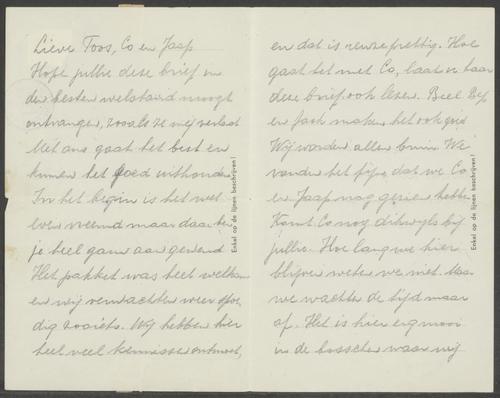 Lieve Toos, Co en Jaap
Hope jullie deze brief in
den besten welstand moogt
ontvangen, zooals ze mij verlaat
Met ons gaat het best en
kunnen het goed uithouden
In het begin is het wel
even vreemd maar daar ben
je heel gauw aan gewend
Het pakket was heel welkom
en wij verwachten weer spoe
dig zooiets. Wij hebben hier
heel veel kennisse ontmoet,
Enkel op de lijnen beschrijven!
en dat is reuze prettig. Hoe
gaat het met Co, laat ze haar
deze brief ook lezen. Biel Bep
en Jack maken het ook goed
Wij worden allen bruin. We
vonden het fijn dat we Co
en Jaap nog gezien hebben
Komt Co nog dikwijls bij
jullie. Hoe lang we hier
blijven weten we niet. Maar
we wachten de tijd maar
af. Het is hier erg mooi
in de bosschen waar wij
Enkel op de lijnen beschrijven!